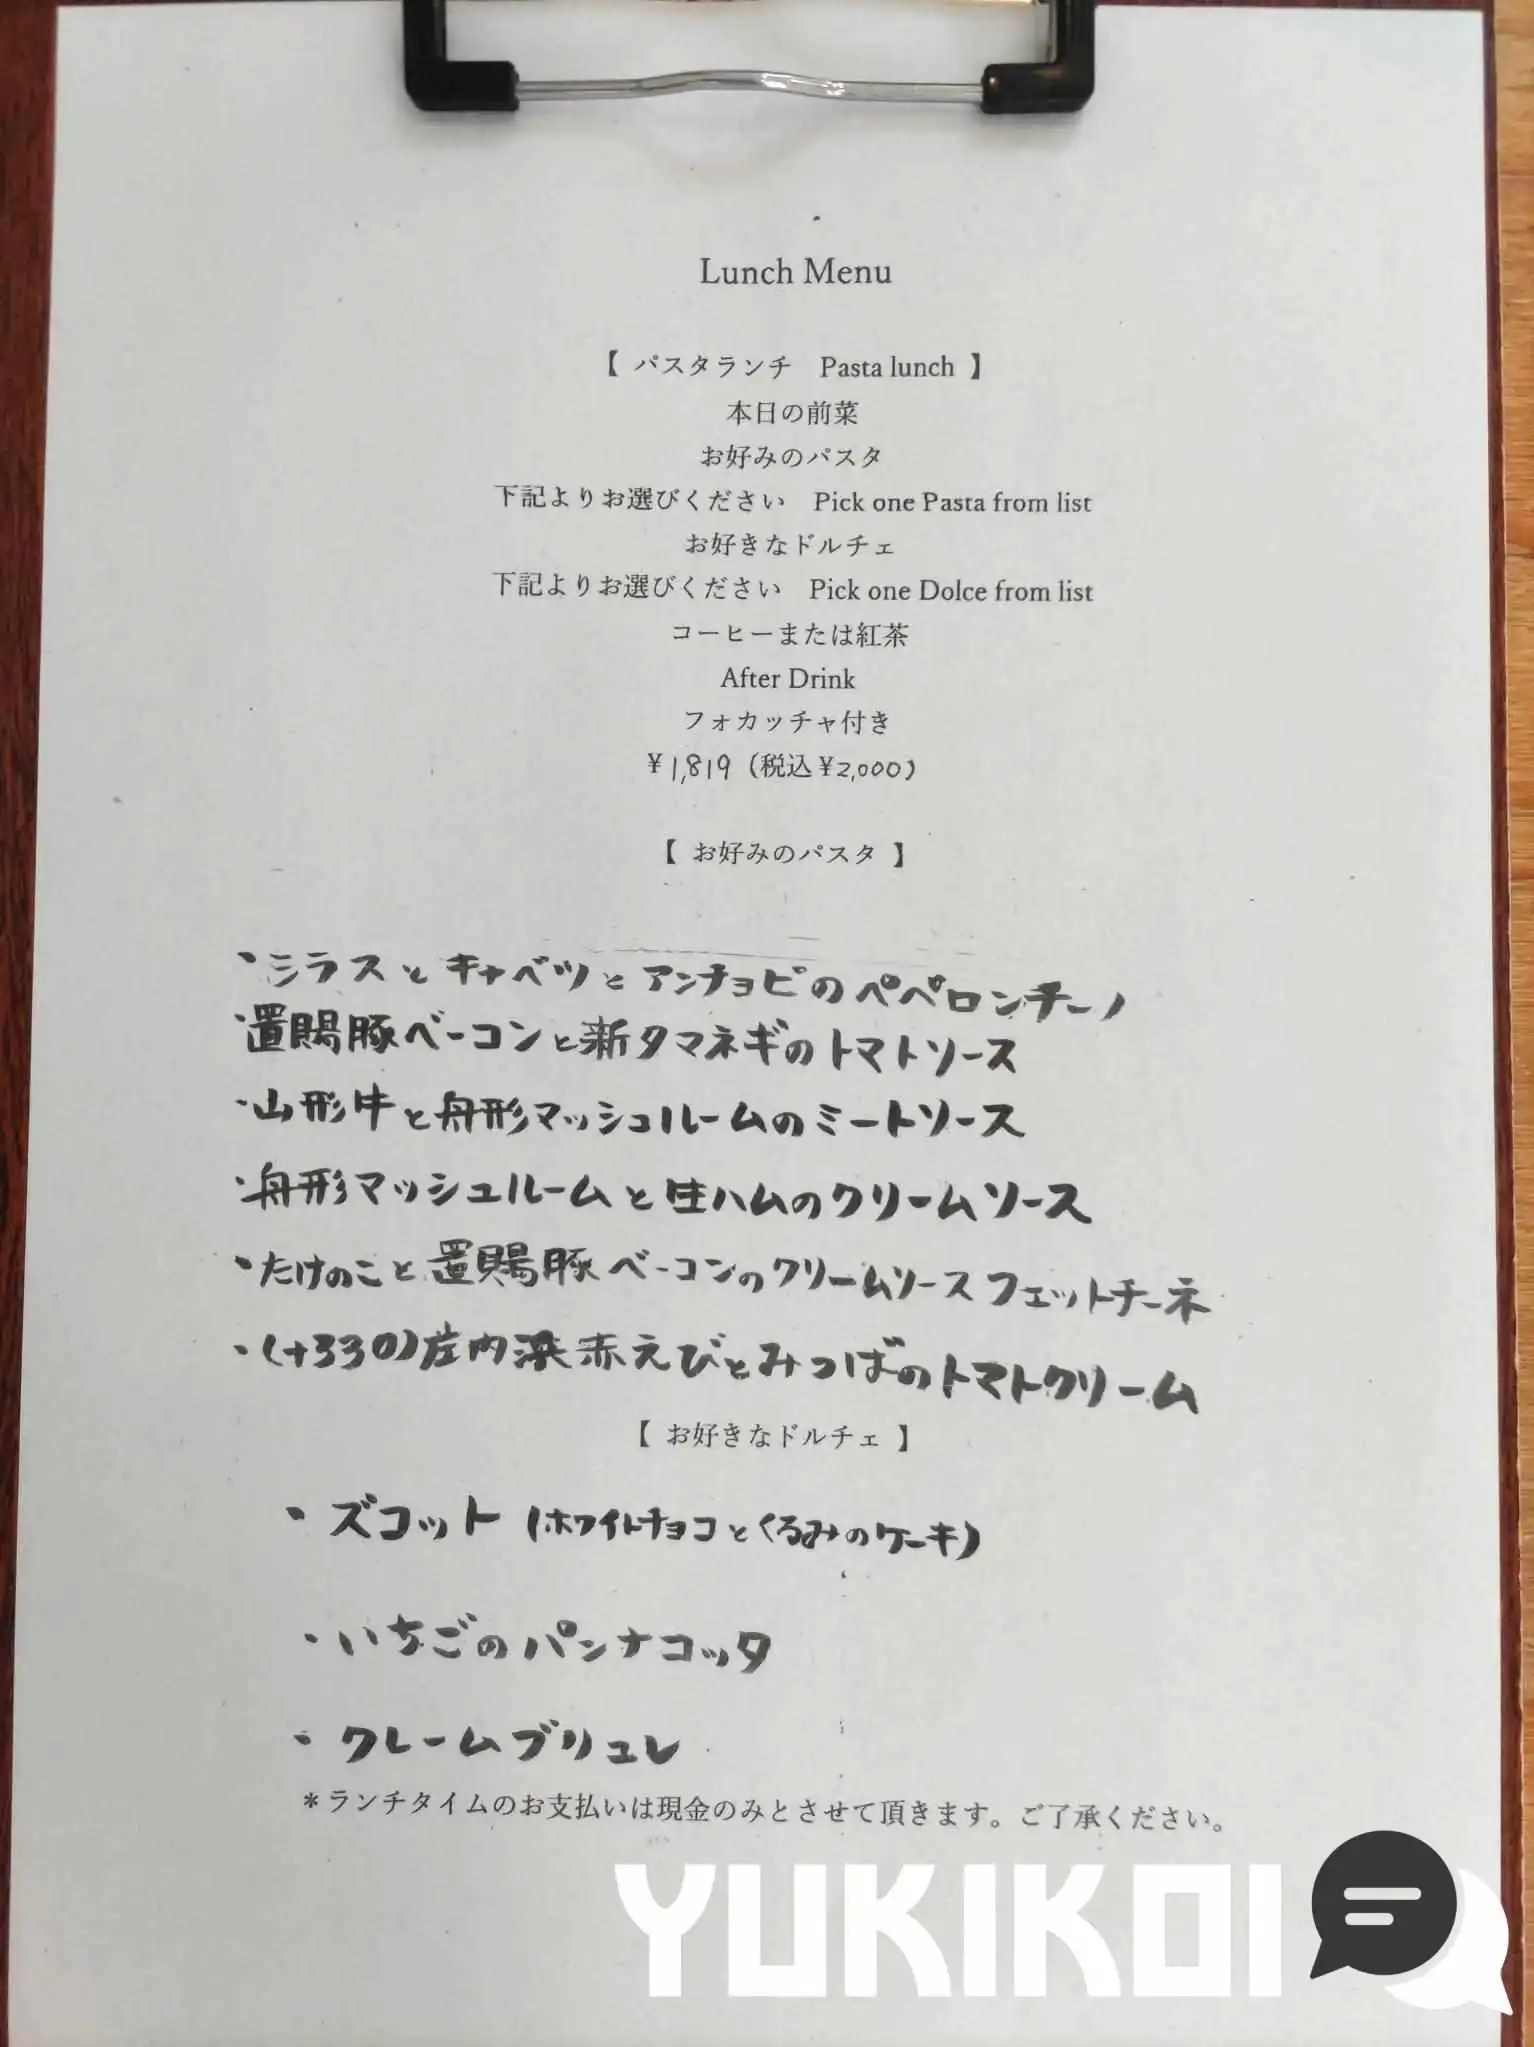 Lunch Menu
【 パスタランチ　Pasta lunch 】
本日の前菜
お好みのパスタ
下記よりお選びください　Pick one Pasta from list
お好きなドルチェ
下記よりお選びください　Pick one Dolce from list
コーヒーまたは紅茶
After Drink
フォカッチャ付き
¥1,819（税込¥2,000）
【 お好みのパスタ 】
・シラスとキャベツとアンチョビのペペロンチーノ
・置賜豚ベーコンと新タマネギのトマトソース
・山形牛と舟形マッシュルームのミートソース
・舟形マッシュルームと生ハムのクリームソース
・たけのこと置賜豚ベーコンのクリームソースフェットチーネ
・(+330)庄内浜赤えびとみつばのトマトクリーム
【 お好きなドルチェ 】
・ズコット (ホワイトチョコとくるみのケーキ)
・いちごのパンナコッタ
・クレームブリュレ
＊ランチタイムのお支払いは現金のみとさせて頂きます。ご了承ください。
YUKIKOI